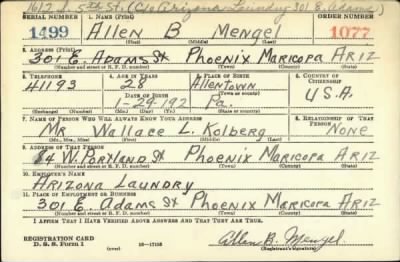 1612 S. 5th St. (C/o Arizona Laundry 301 E. Adams)
SERIAL NUMBER 1. NAME (Print) ORDER NUMBER
1499 Allen B Mengel 1077
(First) (Middle) (Last)
2. ADDRESS (Print)
301 E. Adams St Phoenix Maricopa Ariz
(Number and street or R. F. D. number) (Town) (County) (State)
3. TELEPHONE 4. AGE IN YEARS 5. PLACE OF BIRTH 6. COUNTRY OF CITIZENSHIP
41193 28 Allentown
DATE OF BIRTH (Town or county)
1-29-192 Pa. U.S.A.
(Exchange) (Number) (Mo.) (Day) (Yr.) (State or country)
7. NAME OF PERSON WHO WILL ALWAYS KNOW YOUR ADDRESS 8. RELATIONSHIP OF THAT PERSON
Mr. Wallace L. Kolberg None
(Mr., Mrs., Miss) (First) (Middle) (Last)
9. ADDRESS OF THAT PERSON
84 W. Portland St Phoenix Maricopa Ariz
(Number and street or R. F. D. number) (Town) (County) (State)
10. EMPLOYER'S NAME
Arizona Laundry
11. PLACE OF EMPLOYMENT OR BUSINESS
301 E. Adams St Phoenix Maricopa Ariz
(Number and street or R. F. D. number) (Town) (County) (State)
I AFFIRM THAT I HAVE VERIFIED ABOVE ANSWERS AND THAT THEY ARE TRUE.
REGISTRATION CARD
D. S. S. Form 1 (over) 16-17105 Allen B. Mengel
(Registrant's signature)